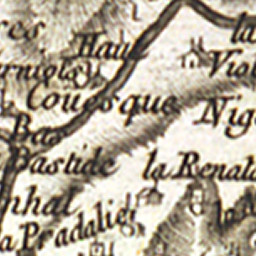 res
la
Haut
rniols
Viol
Couesque
Nig
Bas
Bastide
la Renala
nhal
la
a Pradalie